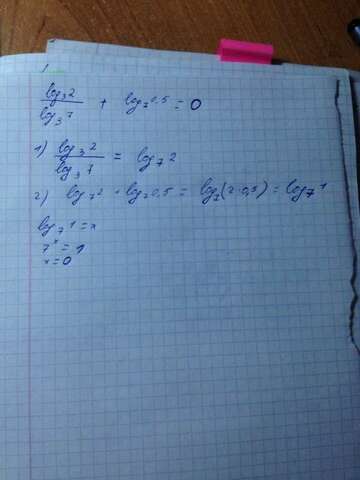 log₃2 / log₃7 + log₇0,5 = 0
1) log₃2 / log₃7 = log₇2
2) log₇2 + log₇0,5 = log₇(2·0,5) = log₇1
log₇1 = x
7ˣ = 1
x = 0